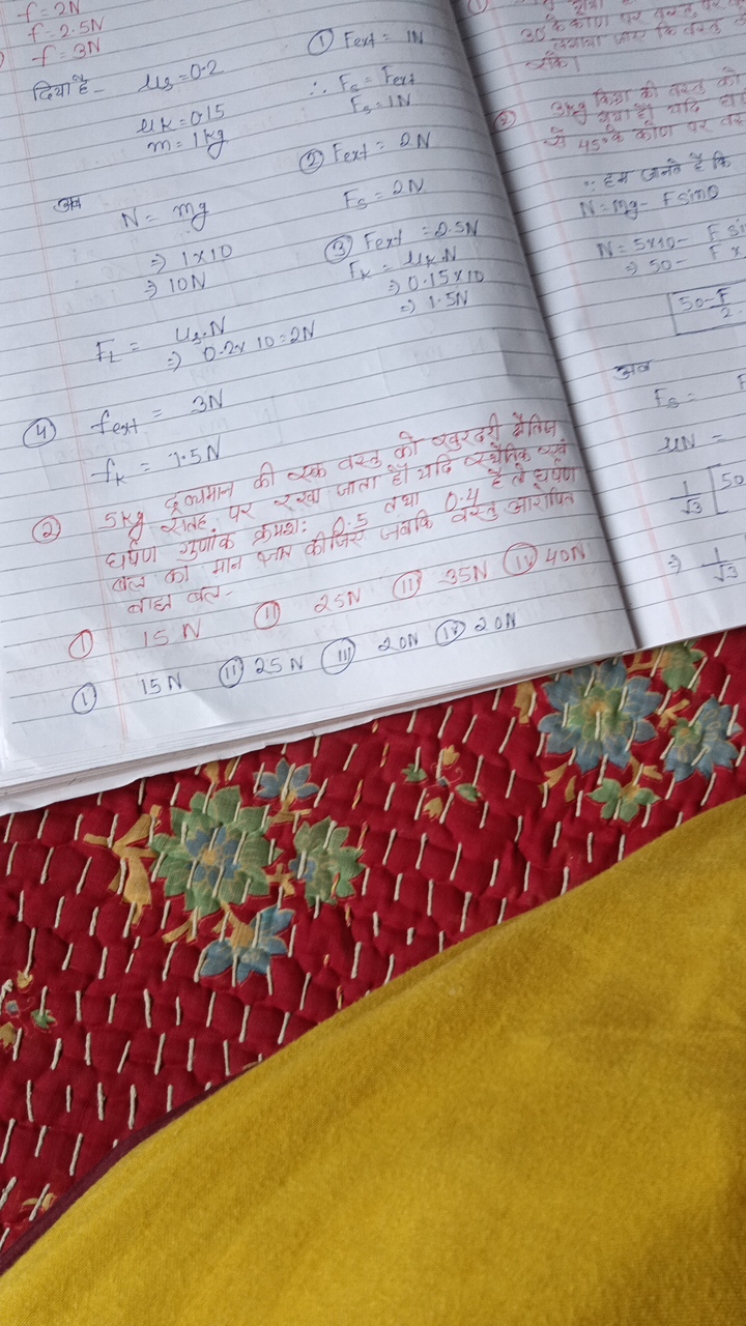 f = 2N
f = 2.5N
f = 3N
दिया है - μs = 0.2
μk = 0.15
m = 1kg
अब
N = mg
⇒ 1×10
⇒ 10N
FL = μs.N
⇒ 0.2× 10 = 2N
① Fext = 1N
∴ Fs = Fext
Fs = 1N
② Fext = 2N
Fs = 2N
③ Fext = 2.5N
Fk = μk.N
⇒ 0.15×10
⇒ 1.5N
④ fext = 3N
fk = 1.5N
② 5kg द्रव्यमान की एक वस्तु को खुरदरी क्षैतिज
सतह पर रखा जाता है। यदि स्थैतिक एवं
घर्षण गुणांक क्रमशः 0.5 तथा 0.4 है तो घर्षण
बल का मान ज्ञात कीजिए जबकि वस्तु आरोपित
बाह्य बल -
① 15N ⑪ 25N ⑪① 35N ⑰ 40N
① 15N ⑪ 25N ⑪① 20N ⑰ 20N
①
30° के कोण पर वस्तु पर
लगाया जाए कि वस्तु
सके।
② 3kg किग्रा की वस्तु को
यदि
से 45° के कोण पर
∵ हम जानते हैं कि
N = mg - Fsinθ
N = 5×10 - F
⇒ 50 - F ×
50 - F
2
अब
Fs =
μN =
1/√3 [50
⇒ 1/√3